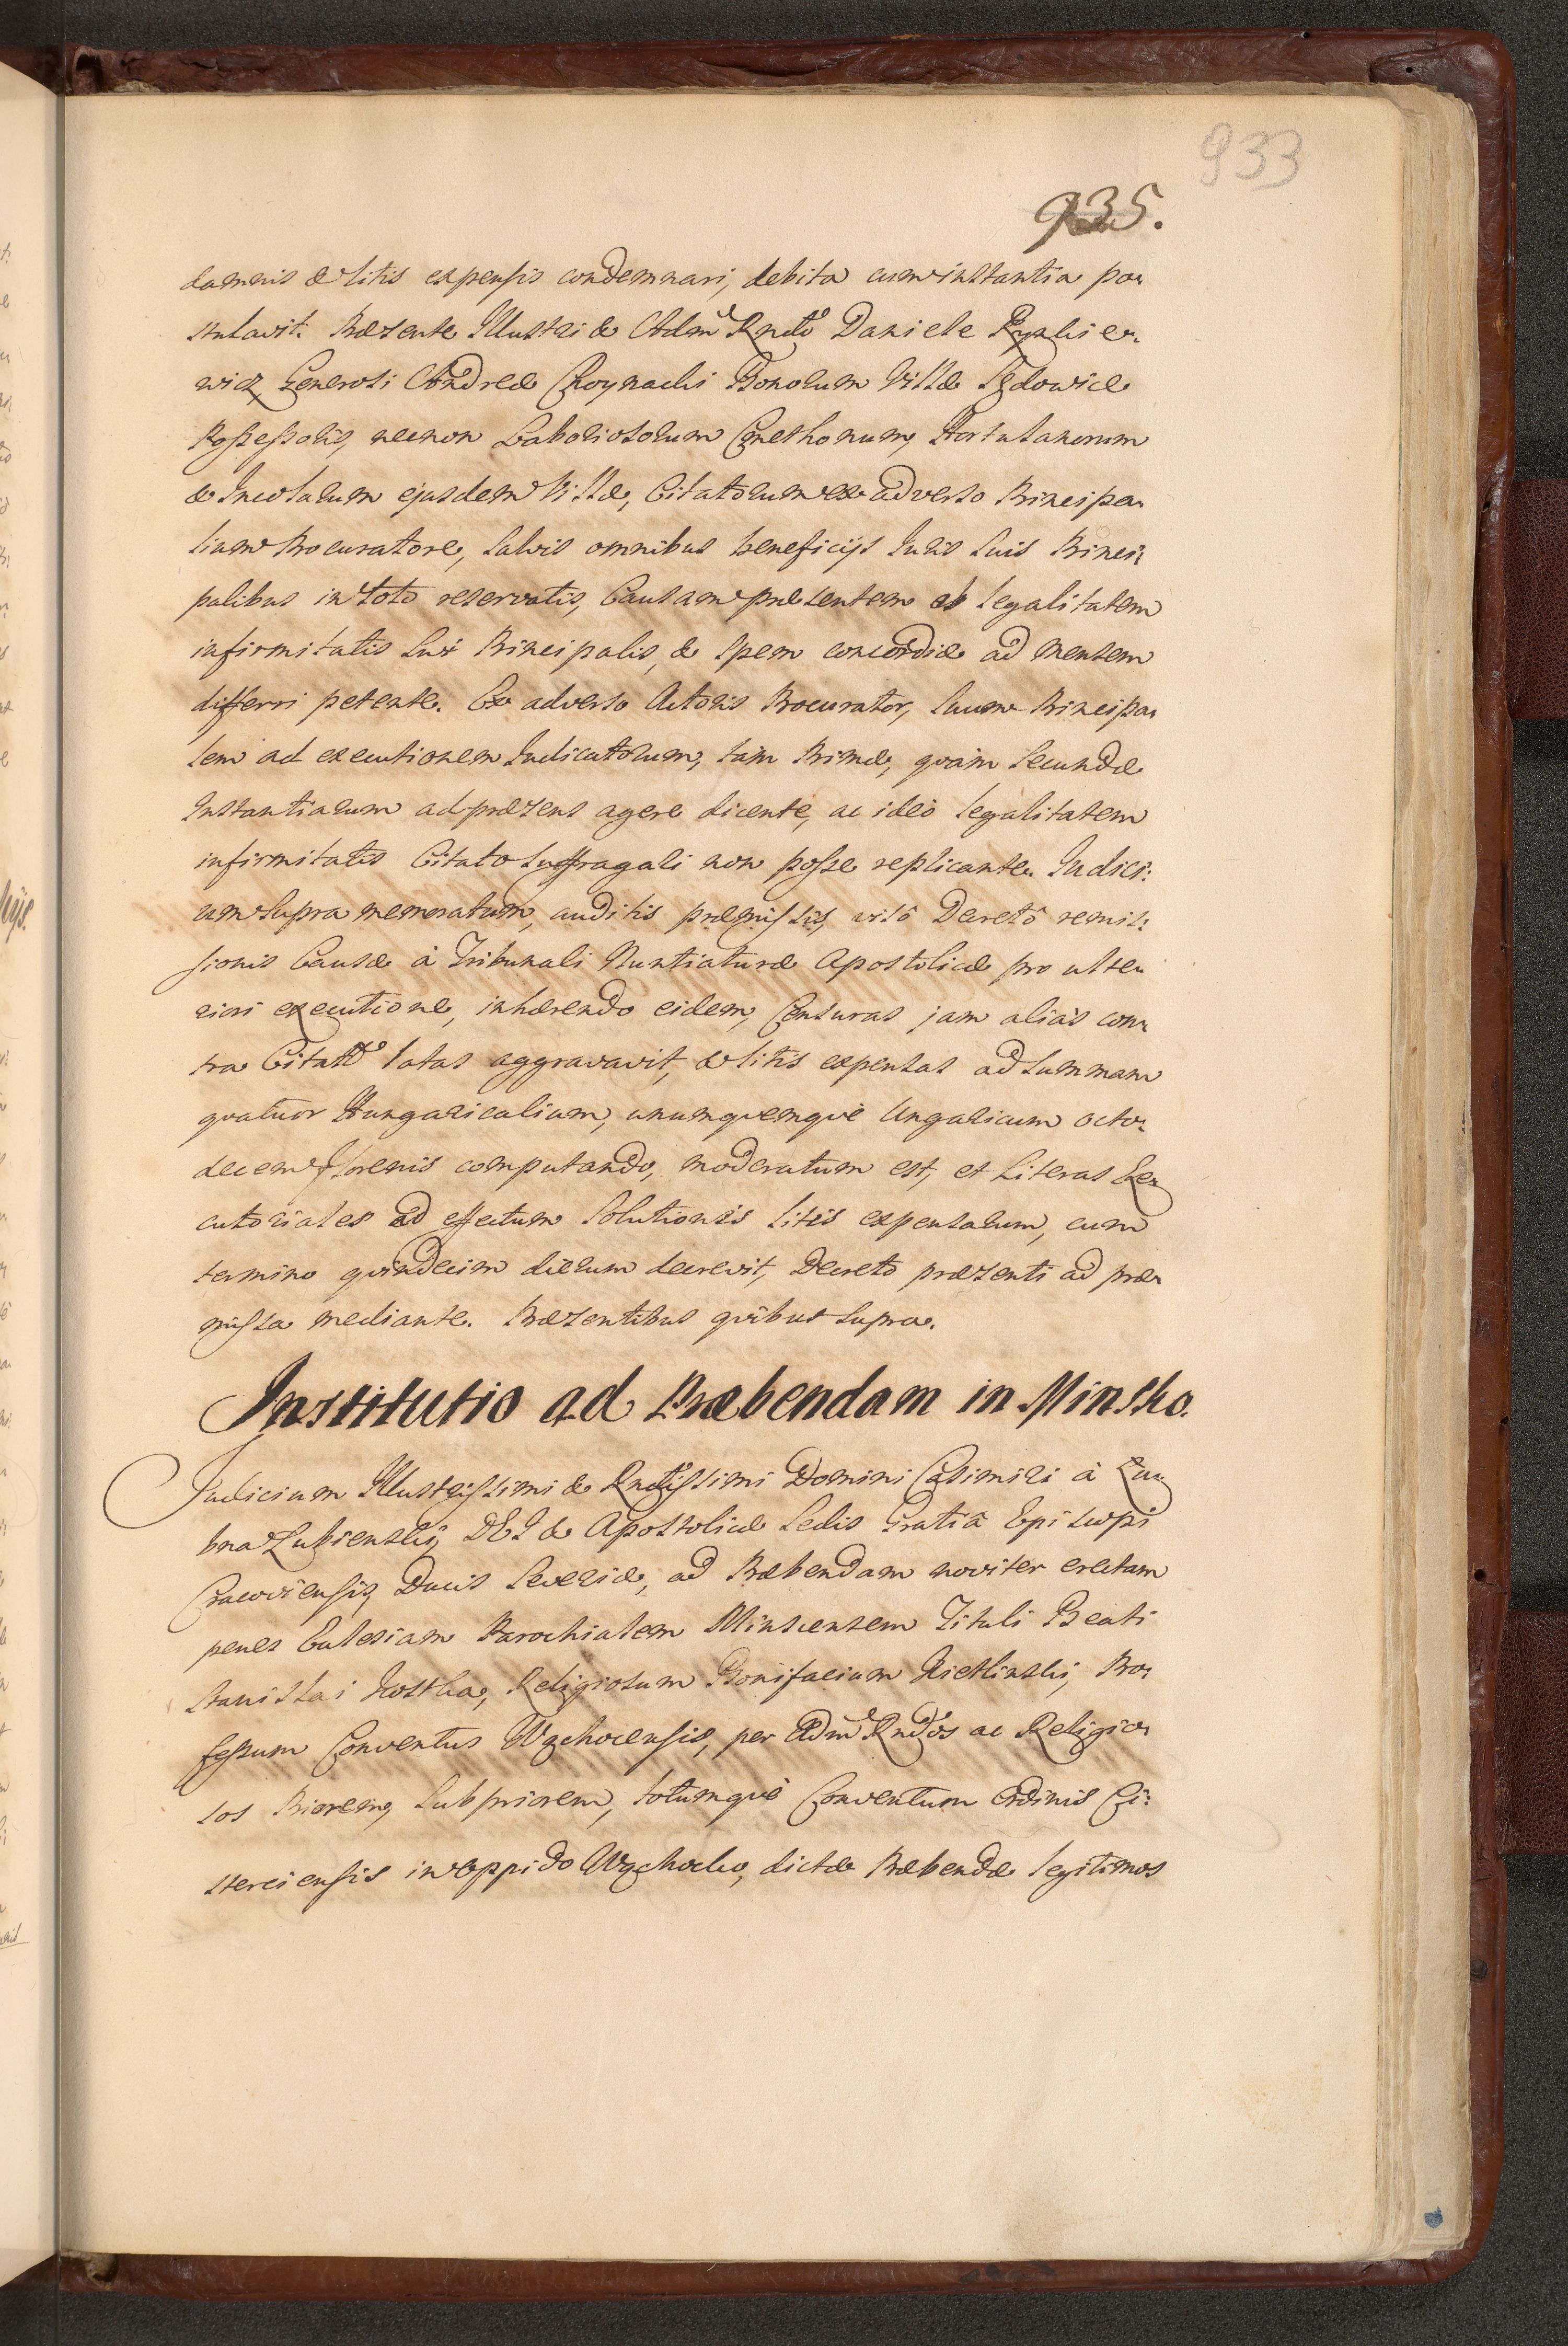 933
935.
damnis & litis expensis condemnari, debita cum instantia po-
stulavit. Præsente Illustri & Adm Rndo Daniele
wicz Generosi Andreæ Choynacki Bonorum Villæ
Possessoris, necnon Laboriosorum Cmethonum, Hortulanorum
& Incolarum ejusdem Villæ, Citatorum ex adverso Principa-
lium Procuratore, salvis omnibus beneficijs Juris suis Princi-
palibus in toto reservatis, Causam præsentem ob legalitatem
infirmitatis sui Principalis, & spem concordiæ ad mensem
differri petente. Ex adverso Actoris Procurator, suum Principa-
lem ad executionem Judicatorum, tam Primæ, quàm Secundæ
Instantiarum ad præsens agere dicente, ac ideò legalitatem
infirmitatis Citato suffragali non posse replicante. Judici:
um supra memoratum, auditis præmissis, visô Decretô remis:
sionis Causæ à Tribunali Nuntiaturæ Apostolicæ pro ulte-
riori executione, inhærendo eidem, Censuras jam aliàs con-
tra Citatos latas aggravavit, & litis expensas ad summam
quatuor Hungaricalium, unumquemquè Ungaricum octo-
decem florenis computando, moderatum est, et Literas Exe-
cutoriales ad effectum solutionis litis expensarum, cum
termino quindecim dierum decrevit, Decreto præsenti ad præ-
missa mediante. Præsentibus quibus supra.
Institutio ad Præbendam in Minsko.
Judicium Illustrissimi & Rndissimi Domini Casimiri à Łu-
bna Łubienski, DEI & Apostolicæ Sedis Gratiâ Episcopi
Cracoviensis, Ducis Severiæ, ad Præbendam noviter erectam
penes Ecclesiam Parochialem Minscensem Tituli Beati
Stanislai Kostka, Religiosum Bonifacium Kietlinski, Pro-
fessum Conventus Wąchocensis, per Adm Rndos ac Religio-
sos Priorem, Subpriorem, totumquè Conventum Ordinis Ci:
sterciensis in oppido Wąchocko, dictæ Præbendæ legitimos